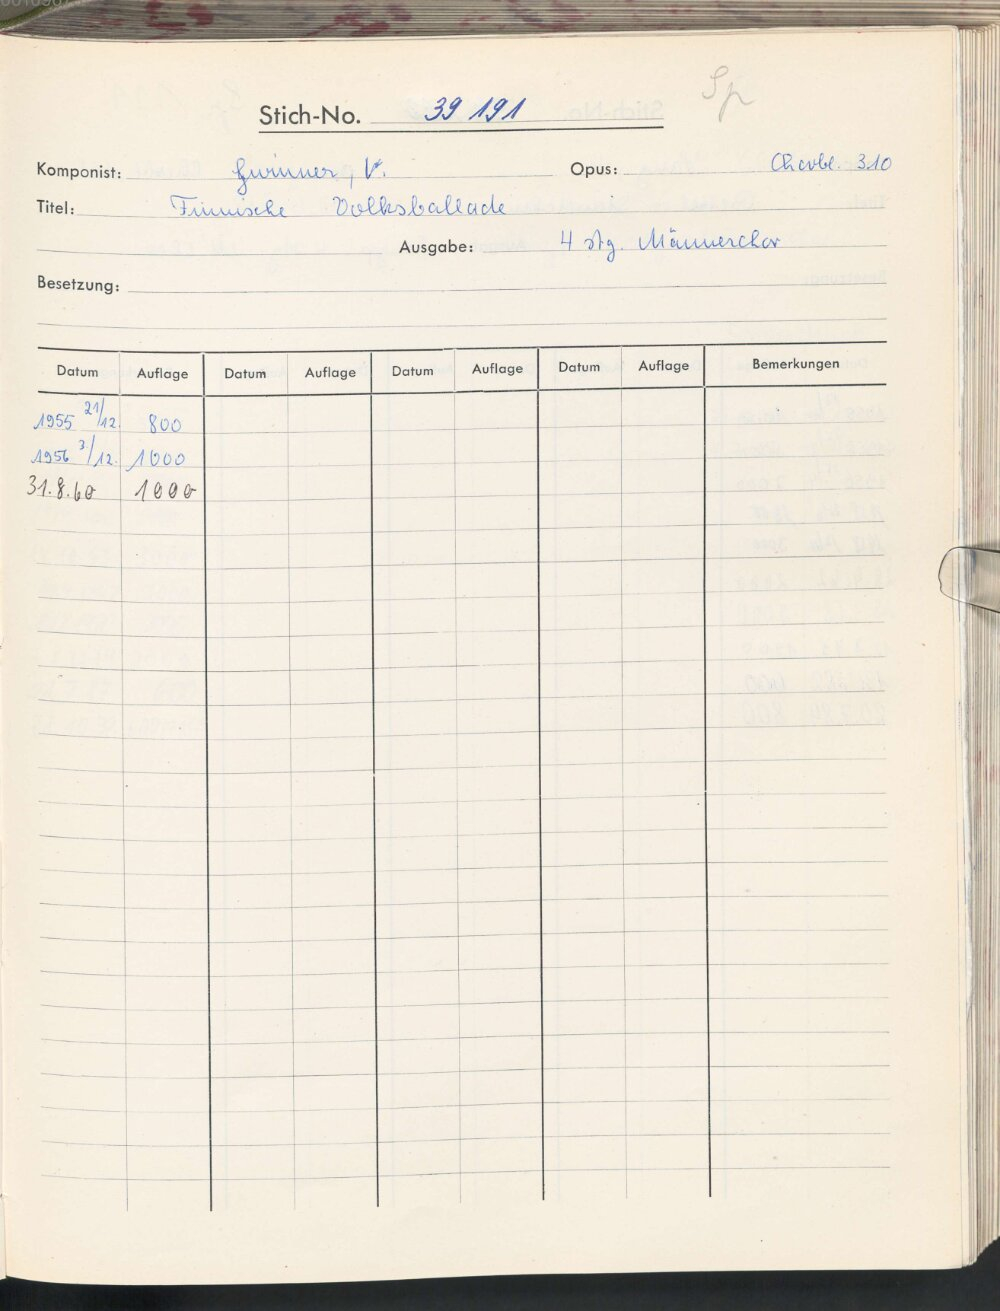 Sp
Stich-No. 39 191
Komponist: Gwinner, V. Opus: Chorbl. 310
Titel: Finnische Volksballade
Ausgabe: 4 stg. Männerchor
Besetzung:
Datum Auflage Datum Auflage Datum Auflage Datum Auflage Bemerkungen
1955 21/12. 800
1956 3./12. 1000
31.8.60 1000